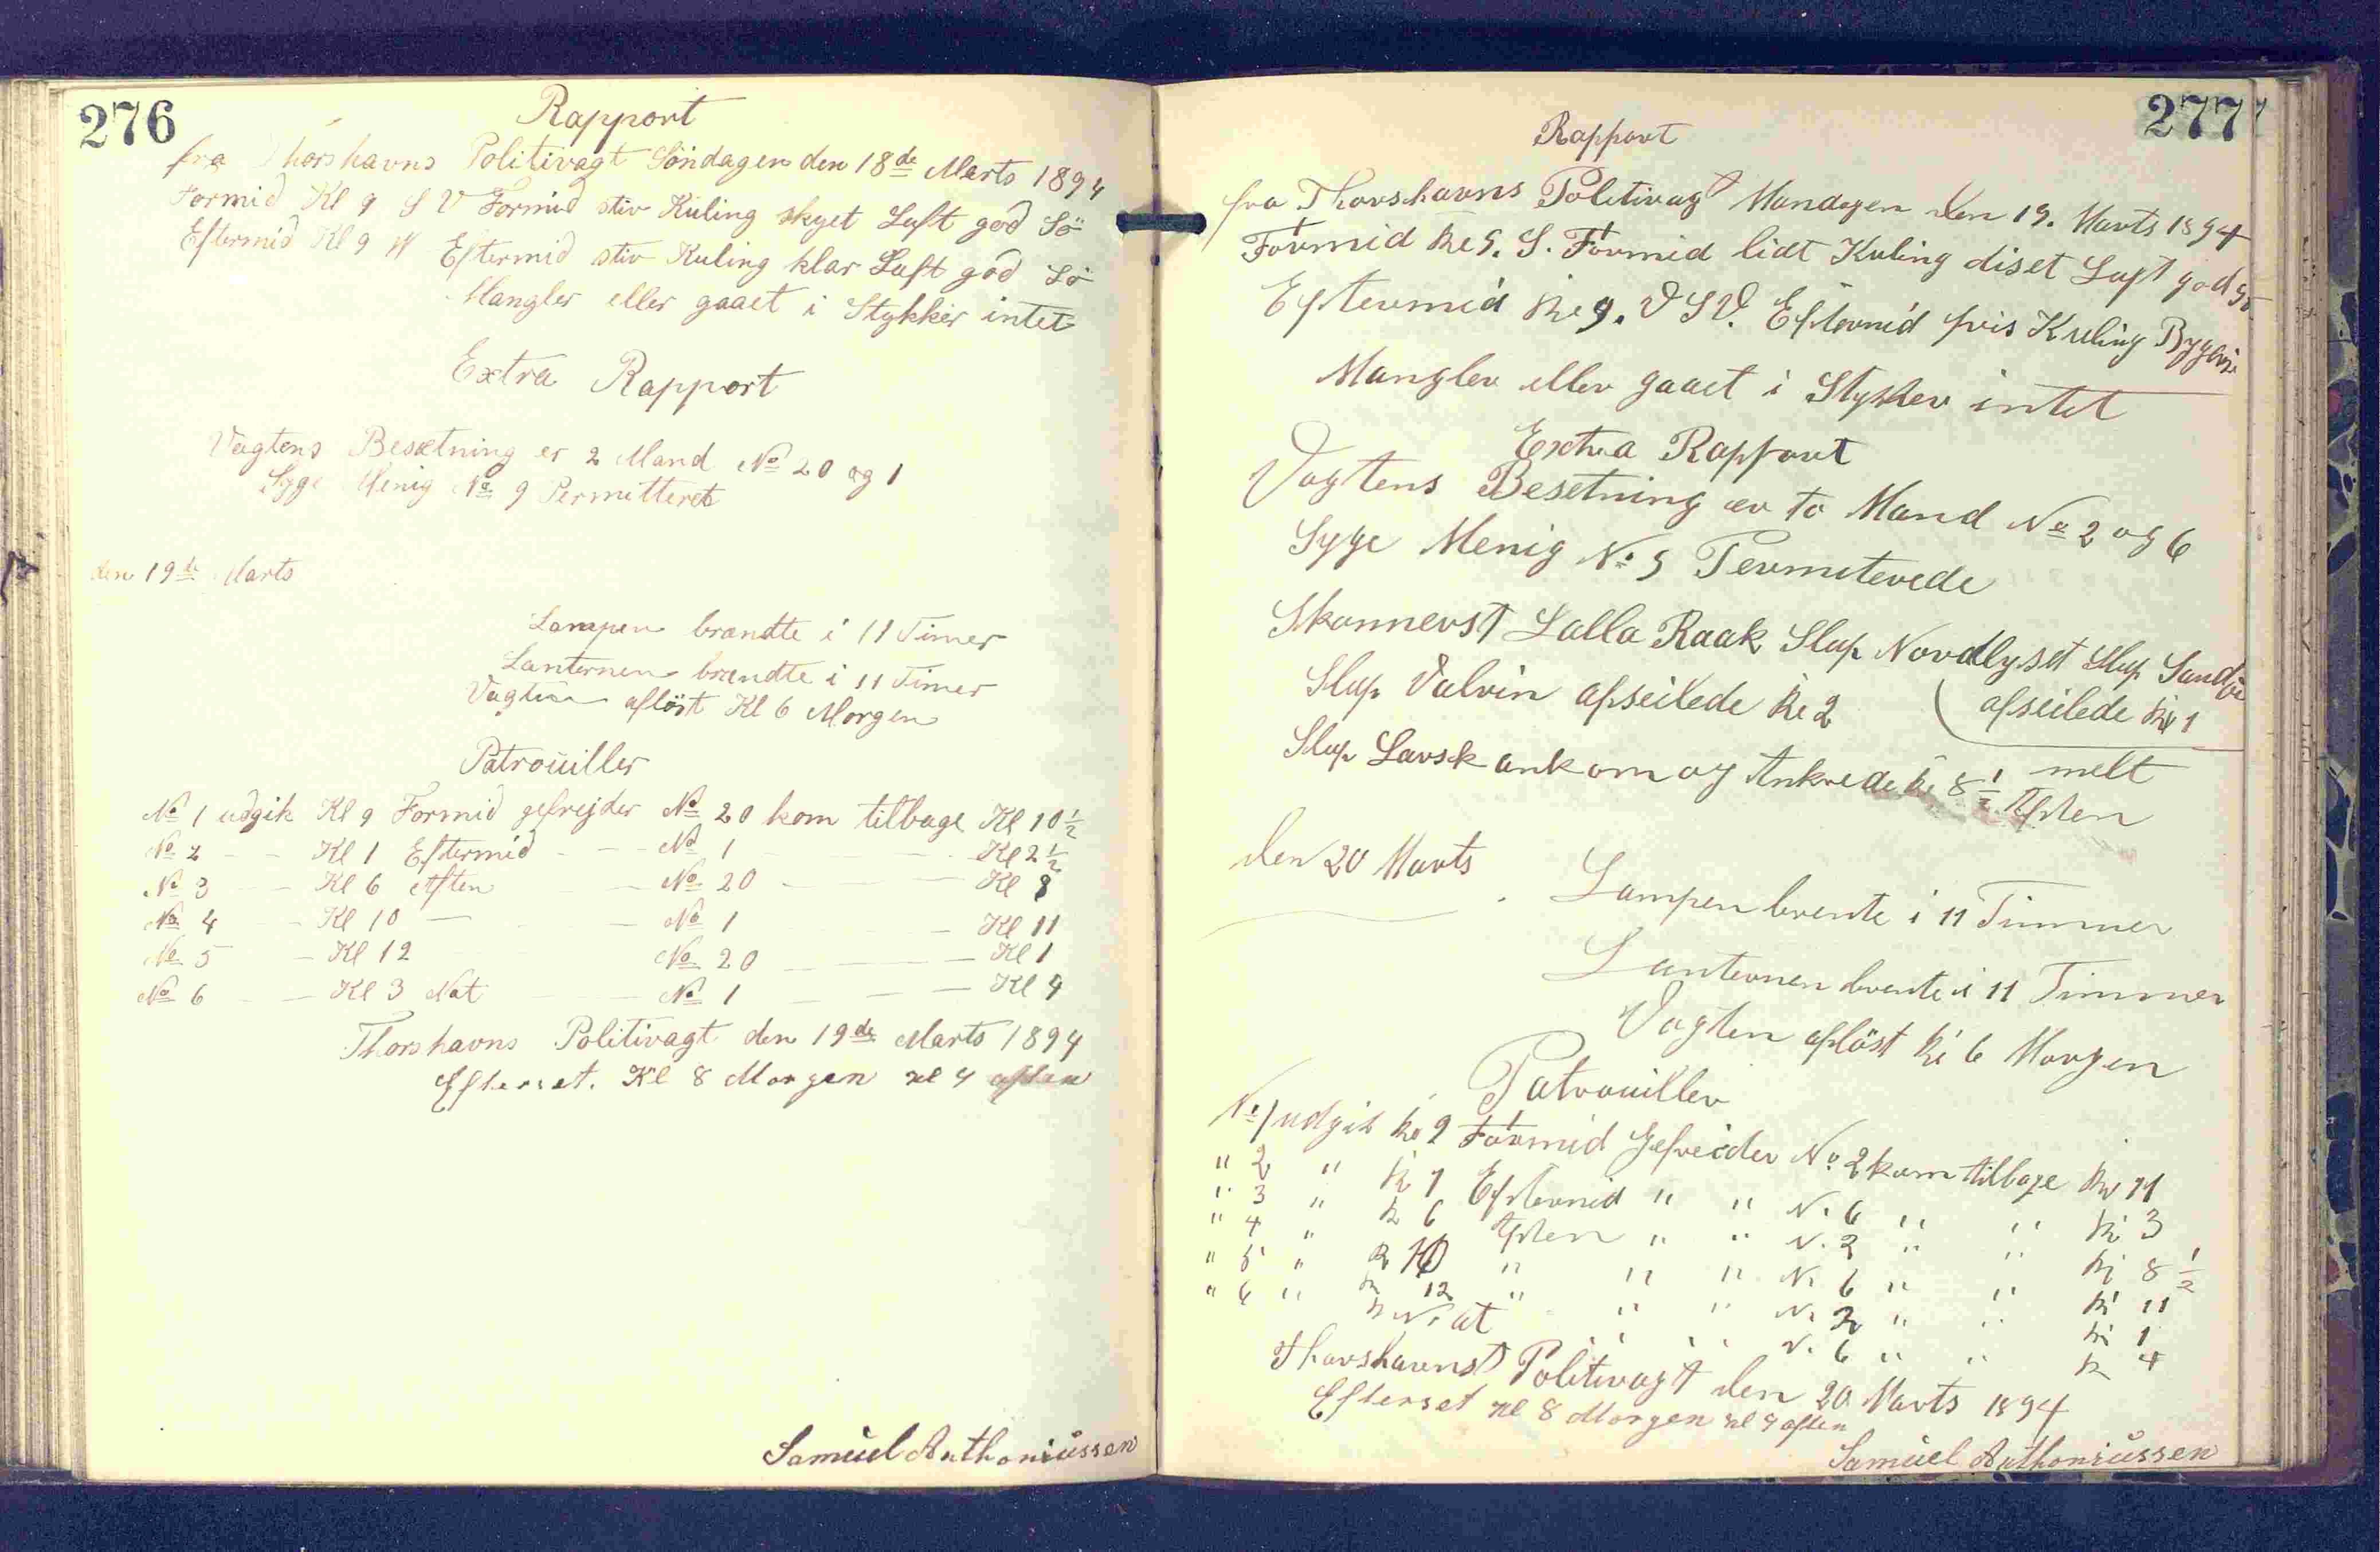 276
Rapport
fra Thorshavns Politivagt Söndagen den 18de Marts 1894
Formid Kl 9 S V Formid stiv Kuling skyet Luft god Sö
Eftermid Kl 9 W Eftermid stiv Kuling klar Luft god Sö
Mangler eller gaaet i Stykker intet
Extra Rapport
Vagtens Besætning er 2 Mand No 20 og 1
Syge Menig No 9 Permitteret
den 19de Marts
Lampen brændte i 11 Timer
Lanternen brændte i 11 Timer
Vagten aflöst Kl 6 Morgen
Patrouiller
No 1 udgik Kl 9 Formid gefrejder No 20 kom tilbage Kl 10 1/2
No 2 — Kl 1 Eftermid — — No 1 — — Kl 2 1/2
No 3 — Kl 6 Aften — No 20 — — Kl 8
No 4 — Kl 10 — — No 1 — Kl 11
No 5 — Kl 12 No 20 — — — Kl 1
No 6 — — Kl 3 Nat — No 1 — — — Kl 4
Thorshavns Politivagt den 19de Marts 1894
Efterset. Kl 8 Morgen kl 4 aften
Samuel Anthoniussen
277
Rapport
fra Thorshavns Politivagt Mandagen den 19. Marts 1894
Formid Kl 9. S. Formid lidt Kuling diset Luft god Sö
Eftermid Kl 9. V S V. Eftermid fris Kuling
Mangler eller gaaet i Stykker intet
Extra Rapport
Vagtens Besetning er to Mand No 2 og 6
Syge Menig No 9 Permiterede
Skonnerst Lalla Raak Slup Nordlyset Slup
Slup Valvin afseilede Kl 2 ( afseilede Kl 1
Slup Larsk ankom og Ankrede Kl 8 1/2 Aften
melt
den 20 Marts
Lampen brente i 11 Timmer
Lanternen brente i 11 Timmer
Vagten aflöst Kl 6 Morgen
Patrouiller
No 1 udgik Kl 9 Formid Gefreider No 2 kom tilbage Kl 11
" 2 " Kl 1 Eftermid " " N. 6 " " Kl 3
" 3 " Kl 6 Aften " " N. 2 " " Kl 8 1/2
" 4 " Kl 10 " " " N. 6 " " Kl 11
" 5 " Kl 12 " " " N. 2 " " Kl 1
" 6 " Kl Nat " " N. 6 " " Kl 4
Thorshavnst Politivagt den 20 Marts 1894
Efterset kl 8 Morgen kl 4 aften
Samuel Anthoniussen